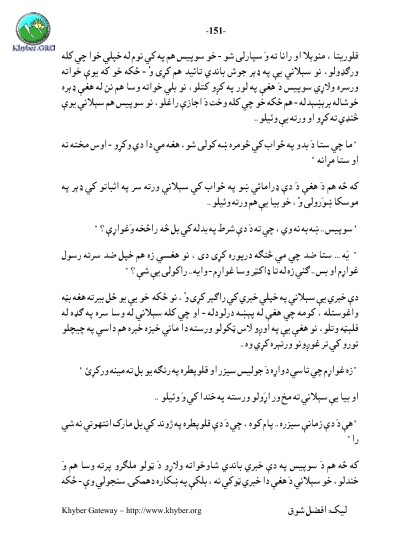 -151-
Khyber.ORG
فلوریتا ، منویلا او رانا ته وَ سپارلی شو - خو سوپیس هم په کې نوم له خپلې خوا چې کله
ورګډولو ، نو سبلانې یې په ډېر جوش باندې تائید هم کړی وُ - ځکه خو که یوې خواته
ورسره ولاړې سوپیس دَ هغې په لور په کړو کتلو ، نو بلې خواته وسا هم نن له هغې ډېره
خوشاله برېښېده - هم ځکه خو چې کله وخت دَ اجازې راغلو ، نو سوپیس هم سبلانې یوې
څنډې ته کړو او ورته یې وئیلو ..
" ما چې ستا دَ بدو په ځواب کې څومره ښه کولی شو ، هغه مې دا دې وکړو - اوس مخته ته
او ستا مړانه "
که څه هم دَ هغې دَ دې ډرامائي ښو په ځواب کې سبلانې ورته سر په اثباتو کې ډېر په
موسکا ښورولی وُ ، خو بیا یې هم ورته وئیلو ..
' سوپیس.. ښه به نه وي ، چې ته دَ دې شرط په بدله کې بل څه راڅخه وَ غواړې ؟ "
" نِه ... ستا ضد چې مې څنګه درپوره کړی دی ، نو هغسې زه هم خپل ضد سرته رسول
غواړم او بس .. ګنې زه له تا ډاکټر وسا غواړم - وایه.. راکولی یې شې ؟ "
دې خبرې یې سبلانې په خپلې خبرې کې راګېر کړی وُ ، نو ځکه خو یې یو ځل بیرته هغه بڼه
واغوستله ، کومه چې هغې له پېښه درلودله - او چې کله سبلانې له وسا سره په ګډه له
فلېټه وتلو ، نو هغې یې په اوږو لاس ټکولو ورسته دا مانې خېزه خبره هم داسې په چیچلو
تورو کې تر غوږونو ورتېره کړې وه ..
"زه غواړم چې تاسې دواړه دَ جولیس سیزر او قلوپطره په رنګه یو بل ته مینه ورکړئ "
او بیا یې سبلانې ته مخ ور اړولو ورسته په خندا کې وَ وئیلو ..
"هې دَ دې زمانې سیزره .. پام کوه ، چې دَ دې قلوپطره په ژوند کې بل مارک انتهونې نه شي
را "
که څه هم دَ سوپیس په دې خبرې باندې شاوخواته ولاړو دَ ټولو ملګرو پرته وسا هم وَ
خندلو ، خو سبلانې دَ هغې دا خبرې ټوکې نه ، بلکې په ښکاره دهمکۍ سنجولې وې - ځکه
Khyber Gateway – http://www.khyber.org
لیک: افضل شوق